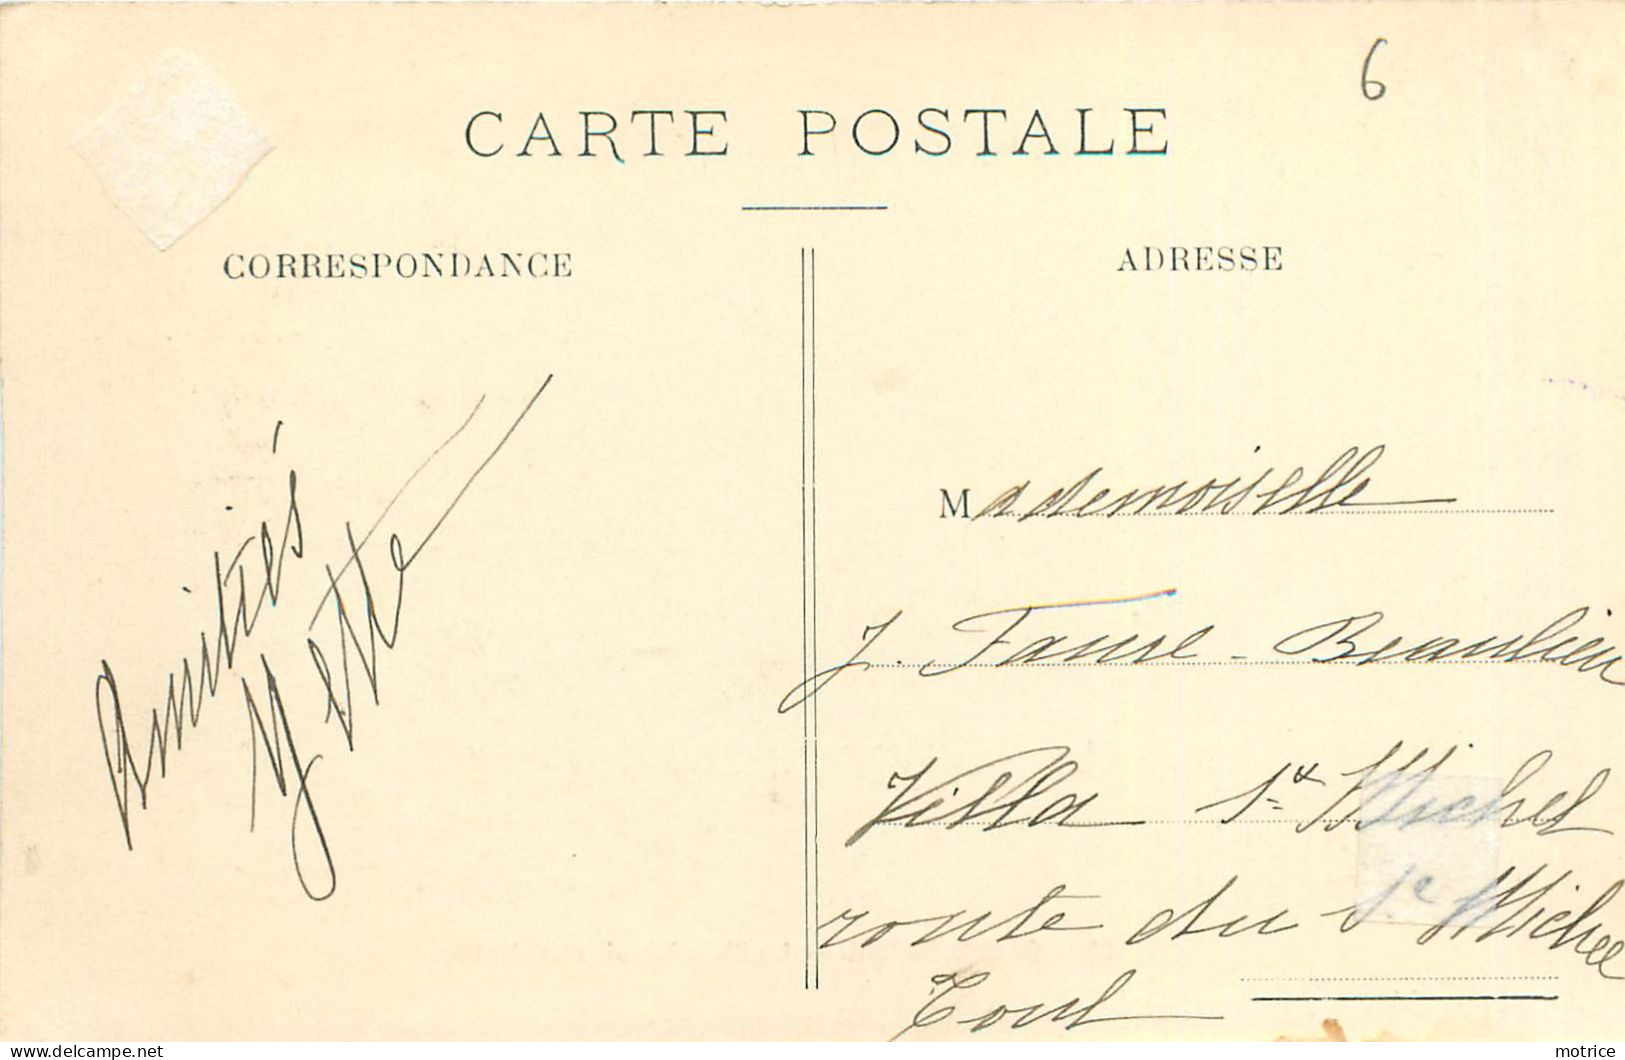 6
CARTE POSTALE
CORRESPONDANCE
ADRESSE
Amitiés
Mademoiselle
J. Faure-Beaulieu
Villa St Michel
route du St Michel
Toul
delcampe.net
motrice